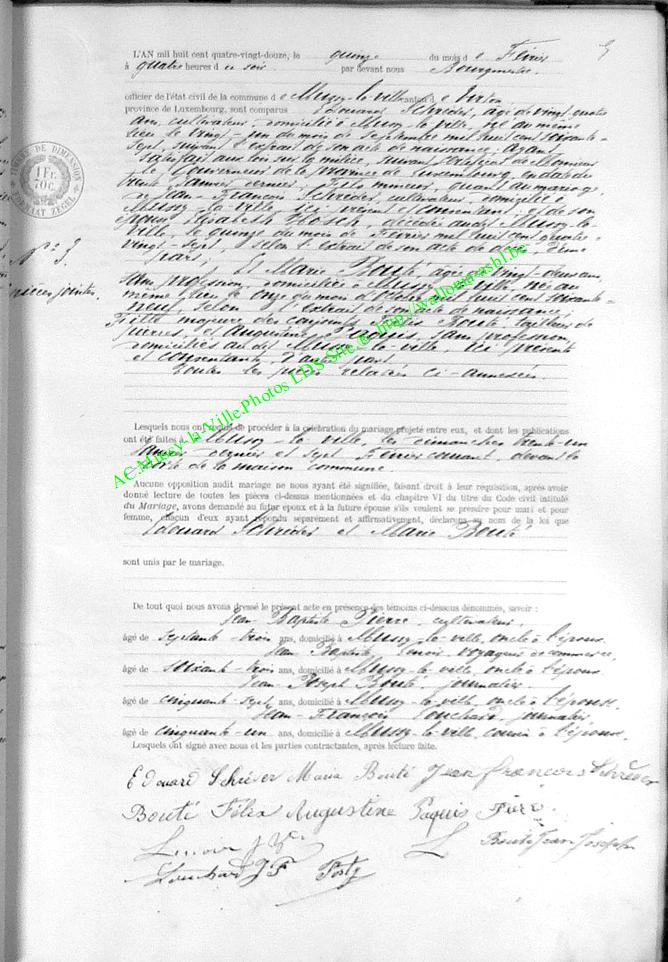 L'AN mil huit cent quatre-vingt-douze, le quinze du mois de Février
à quatre heures de soir par devant nous Bourgmestre
officier de l'état civil de la commune de Mussy-la-ville canton de Virton
province de Luxembourg, sont comparus Edouard Schréder, âgé de vingt-quatre
ans, cultivateur, domicilié à Mussy-la-ville, né au même
lieu le vingt-un du mois de Septembre mil huit cent soixante-
sept, suivant l'extrait de son acte de naissance; ayant
satisfait aux lois sur la milice, suivant certificat de Monsieur
le Gouverneur de la province de Luxembourg, en date du
trente Janvier dernier, Fils mineur, quant au mariage,
de Jean-François Schréder, cultivateur, domicilié à
Mussy-la-ville, ici présent et consentant, et de son
épouse Elisabeth décédée audit Mussy-la-
ville, le quinze du mois de Février mil huit cent quatre-
vingt-sept, selon l'extrait de son acte de décès, d'une
part;
Et Marie Bouté, âgée de vingt-deux ans,
sans profession, domiciliée à Mussy-la-ville, née au
même lieu le onze du mois d' mil huit cent soixante-
neuf, selon l'extrait de son acte de naissance,
Fille majeure des conjoints Félix Bouté, tailleur de
pierres, et Augustine Paquis, sans profession,
domiciliés audit Mussy-la-ville, ici présents
et consentants, d'autre part
Toutes les pièces relatées ci-annexées.
N° 3.
pièces jointes.
TIMBRE DE DIMENSION
1 Fr.
70 c.
FORMAAT ZEGEL
AC.Mussy la-Ville.Photos LDS-Site © http://wallonia-asbl.be
Lesquels nous ont requis de procéder à la célébration du mariage projeté entre eux, et dont les publications
ont été faites à Mussy-la-ville, les dimanches trente-un
Janvier dernier et sept Février courant, devant la
porte de la maison commune.
Aucune opposition audit mariage ne nous ayant été signifiée, faisant droit à leur réquisition, après avoir
donné lecture de toutes les pièces ci-dessus mentionnées et du chapitre VI du titre du Code civil intitulé
du Mariage, avons demandé au futur époux et à la future épouse s'ils veulent se prendre pour mari et pour
femme, chacun d'eux ayant répondu séparément et affirmativement, déclarons au nom de la loi que
Edouard Schréder et Marie Bouté
sont unis par le mariage.
De tout quoi nous avons dressé le présent acte en présence des témoins ci-dessous dénommés, savoir :
Jean Baptiste Pierre, cultivateur,
âgé de septante-trois ans, domicilié à Mussy-la-ville, oncle à l'épouse.
Jean Baptiste voyageur de commerce,
âgé de soixante-trois ans, domicilié à Mussy-la-ville, oncle à l'épouse.
Jean Joseph Bouté, journalier,
âgé de cinquante-sept ans, domicilié à Mussy-la-ville, oncle à l'épouse.
Jean-François Louchard, journalier,
âgé de cinquante-un ans, domicilié à Mussy-la-ville, cousin à l'épouse.
Lesquels ont signé avec nous et les parties contractantes, après lecture faite.
Edouard Schréder Maria Bouté Jean françois Schréder
Bouté Félix Augustine Paquis
Bouté Jean Joseph
Louchard J F